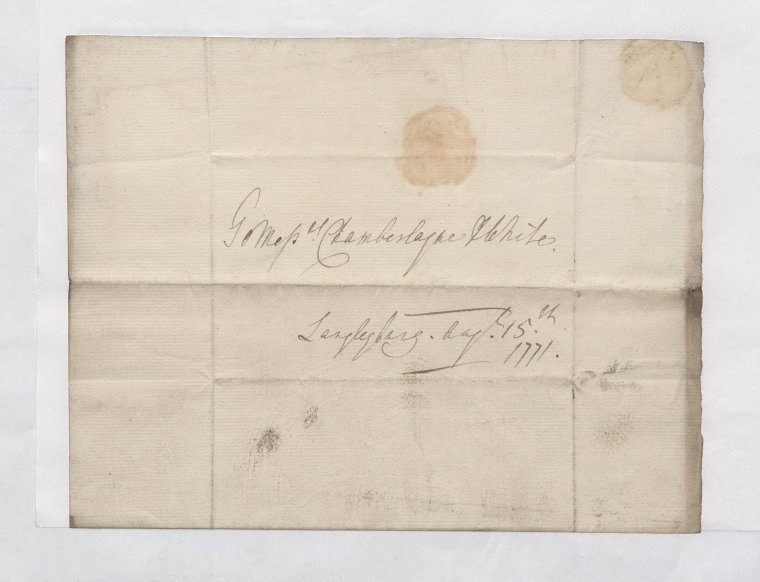 To Messrs Chamberlayne & White.
Langleybury. Augt. 15.th
1771.